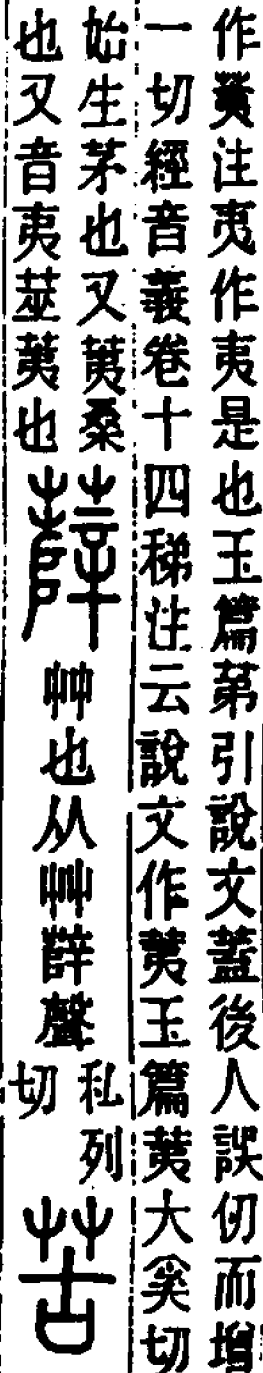 作荑注夷作夷是也玉篇苐引說文蓋後人誤仞而增
一切經音義卷十四稊注云說文作荑玉篇荑大奚切
始生茅也又荑桑
也又音夷莁荑也
薛
艸也从艸辥聲
私列
切
苦